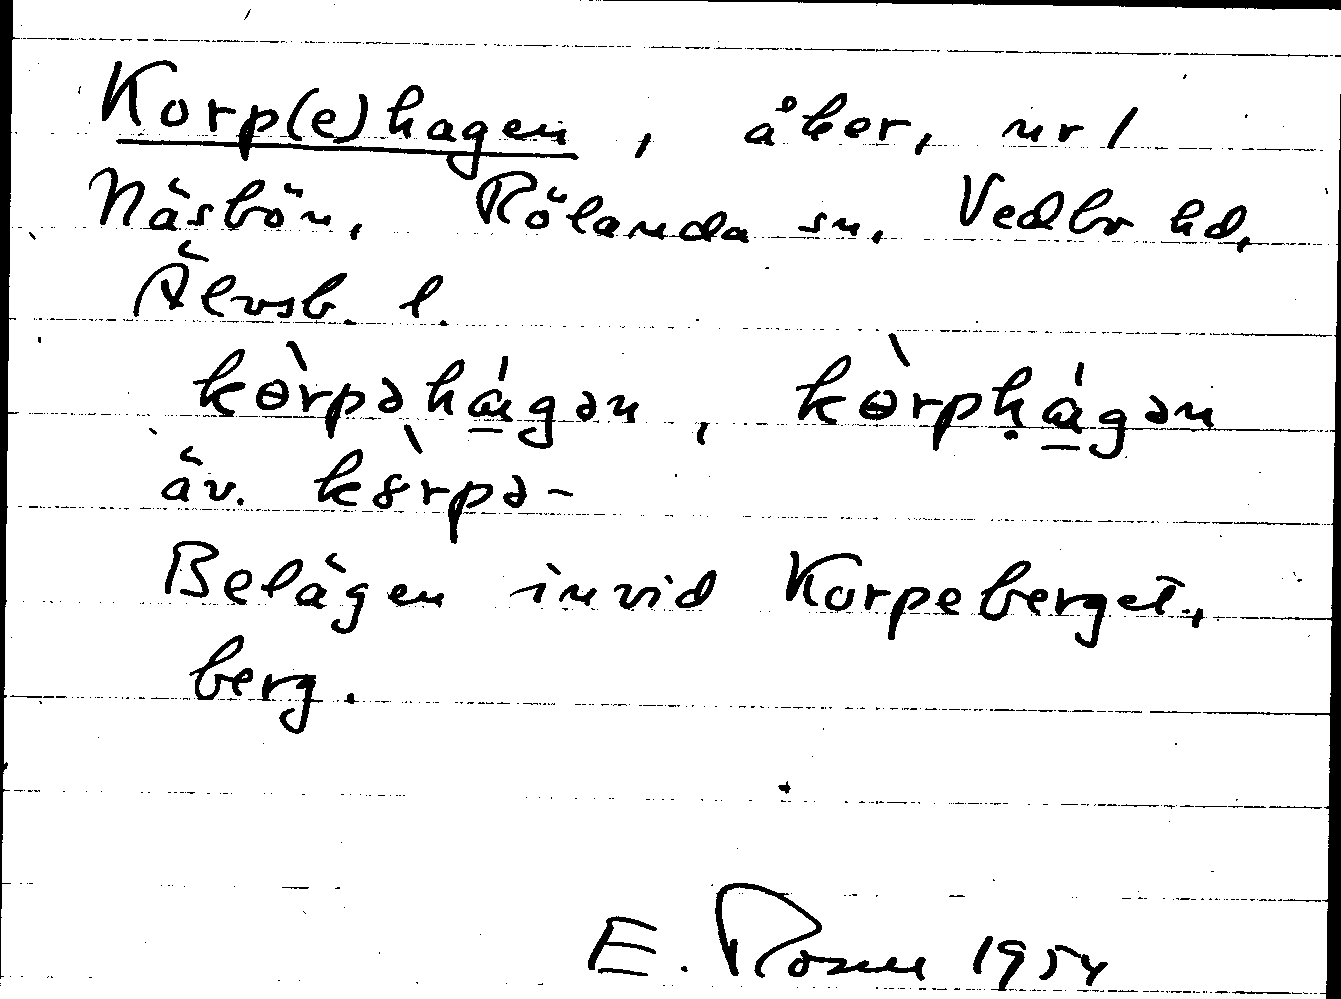 Korp(e)hagen, åker, nr 1
Näsbön, Rölanda sn, Vedbo hd,
Älvsb. l.
kɵ̀rpəhágən, kɵ̀rpḥágən
äv. kȣ̀rpə-
Belägen invid Korpeberget,
berg.
E. Rosell 1954